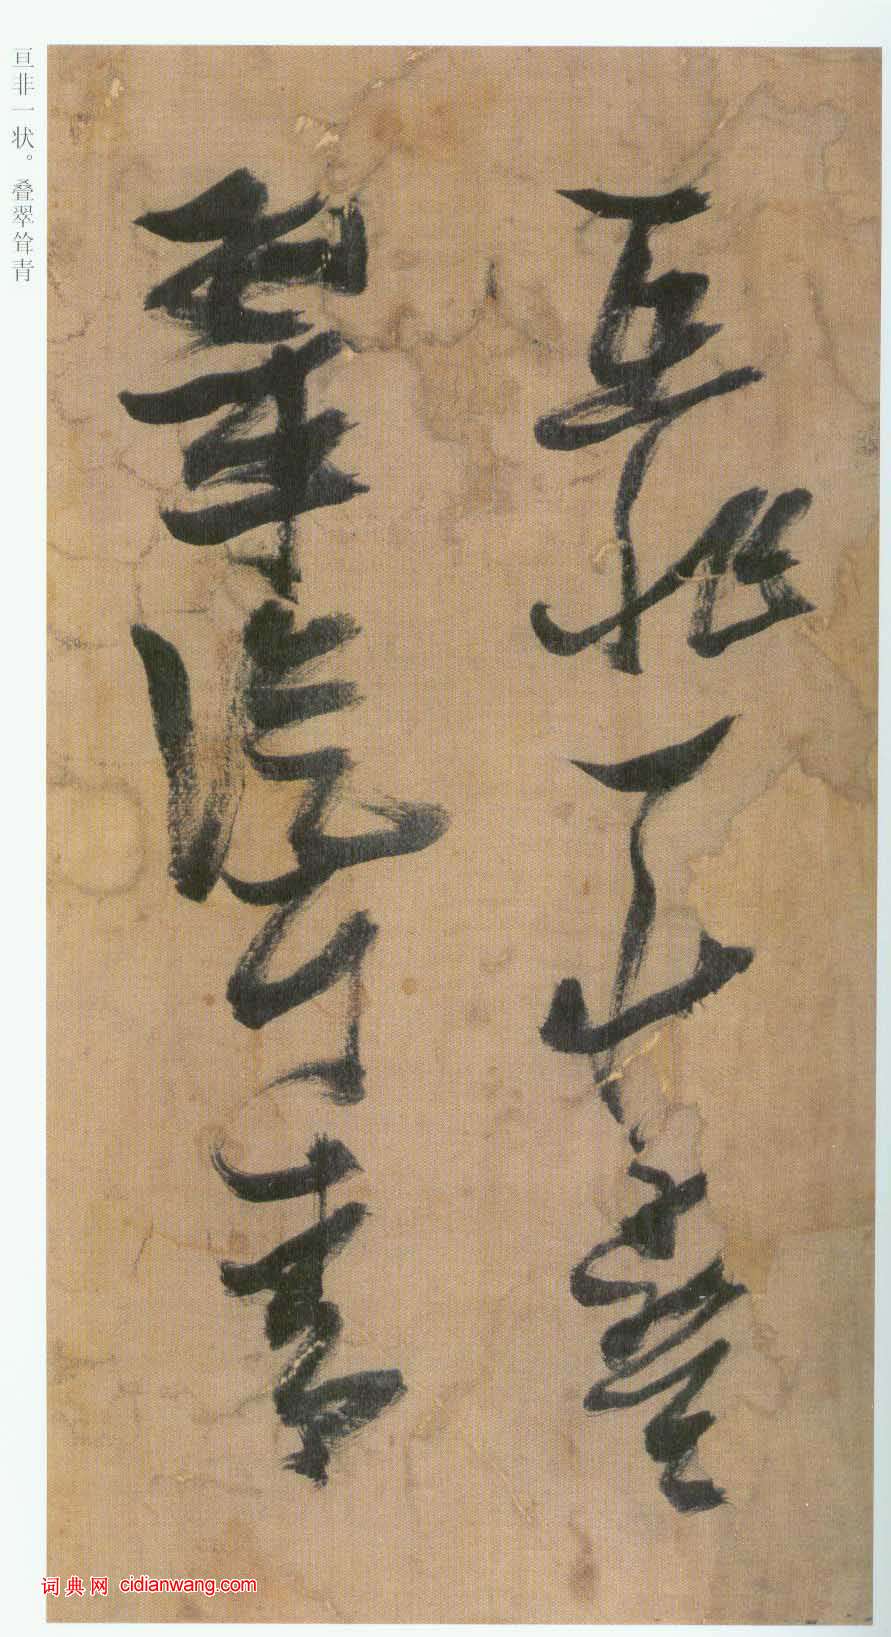 亘非一狀疊
翠聳青
亘非一状。叠翠耸青
词典网 cidianwang.com